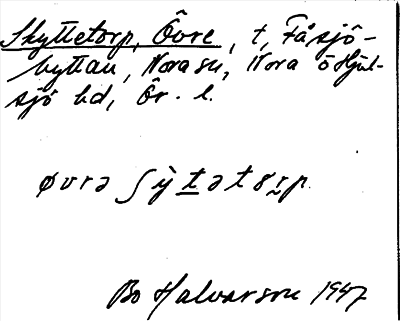 Skyttetorp, Övre, t, Fåsjö-
hyttan, Nora sn, Nora o Hjul-
sjö hd, Ör. l.
øvrə ʃỳtətɤrp
Bo Halvarson 1947